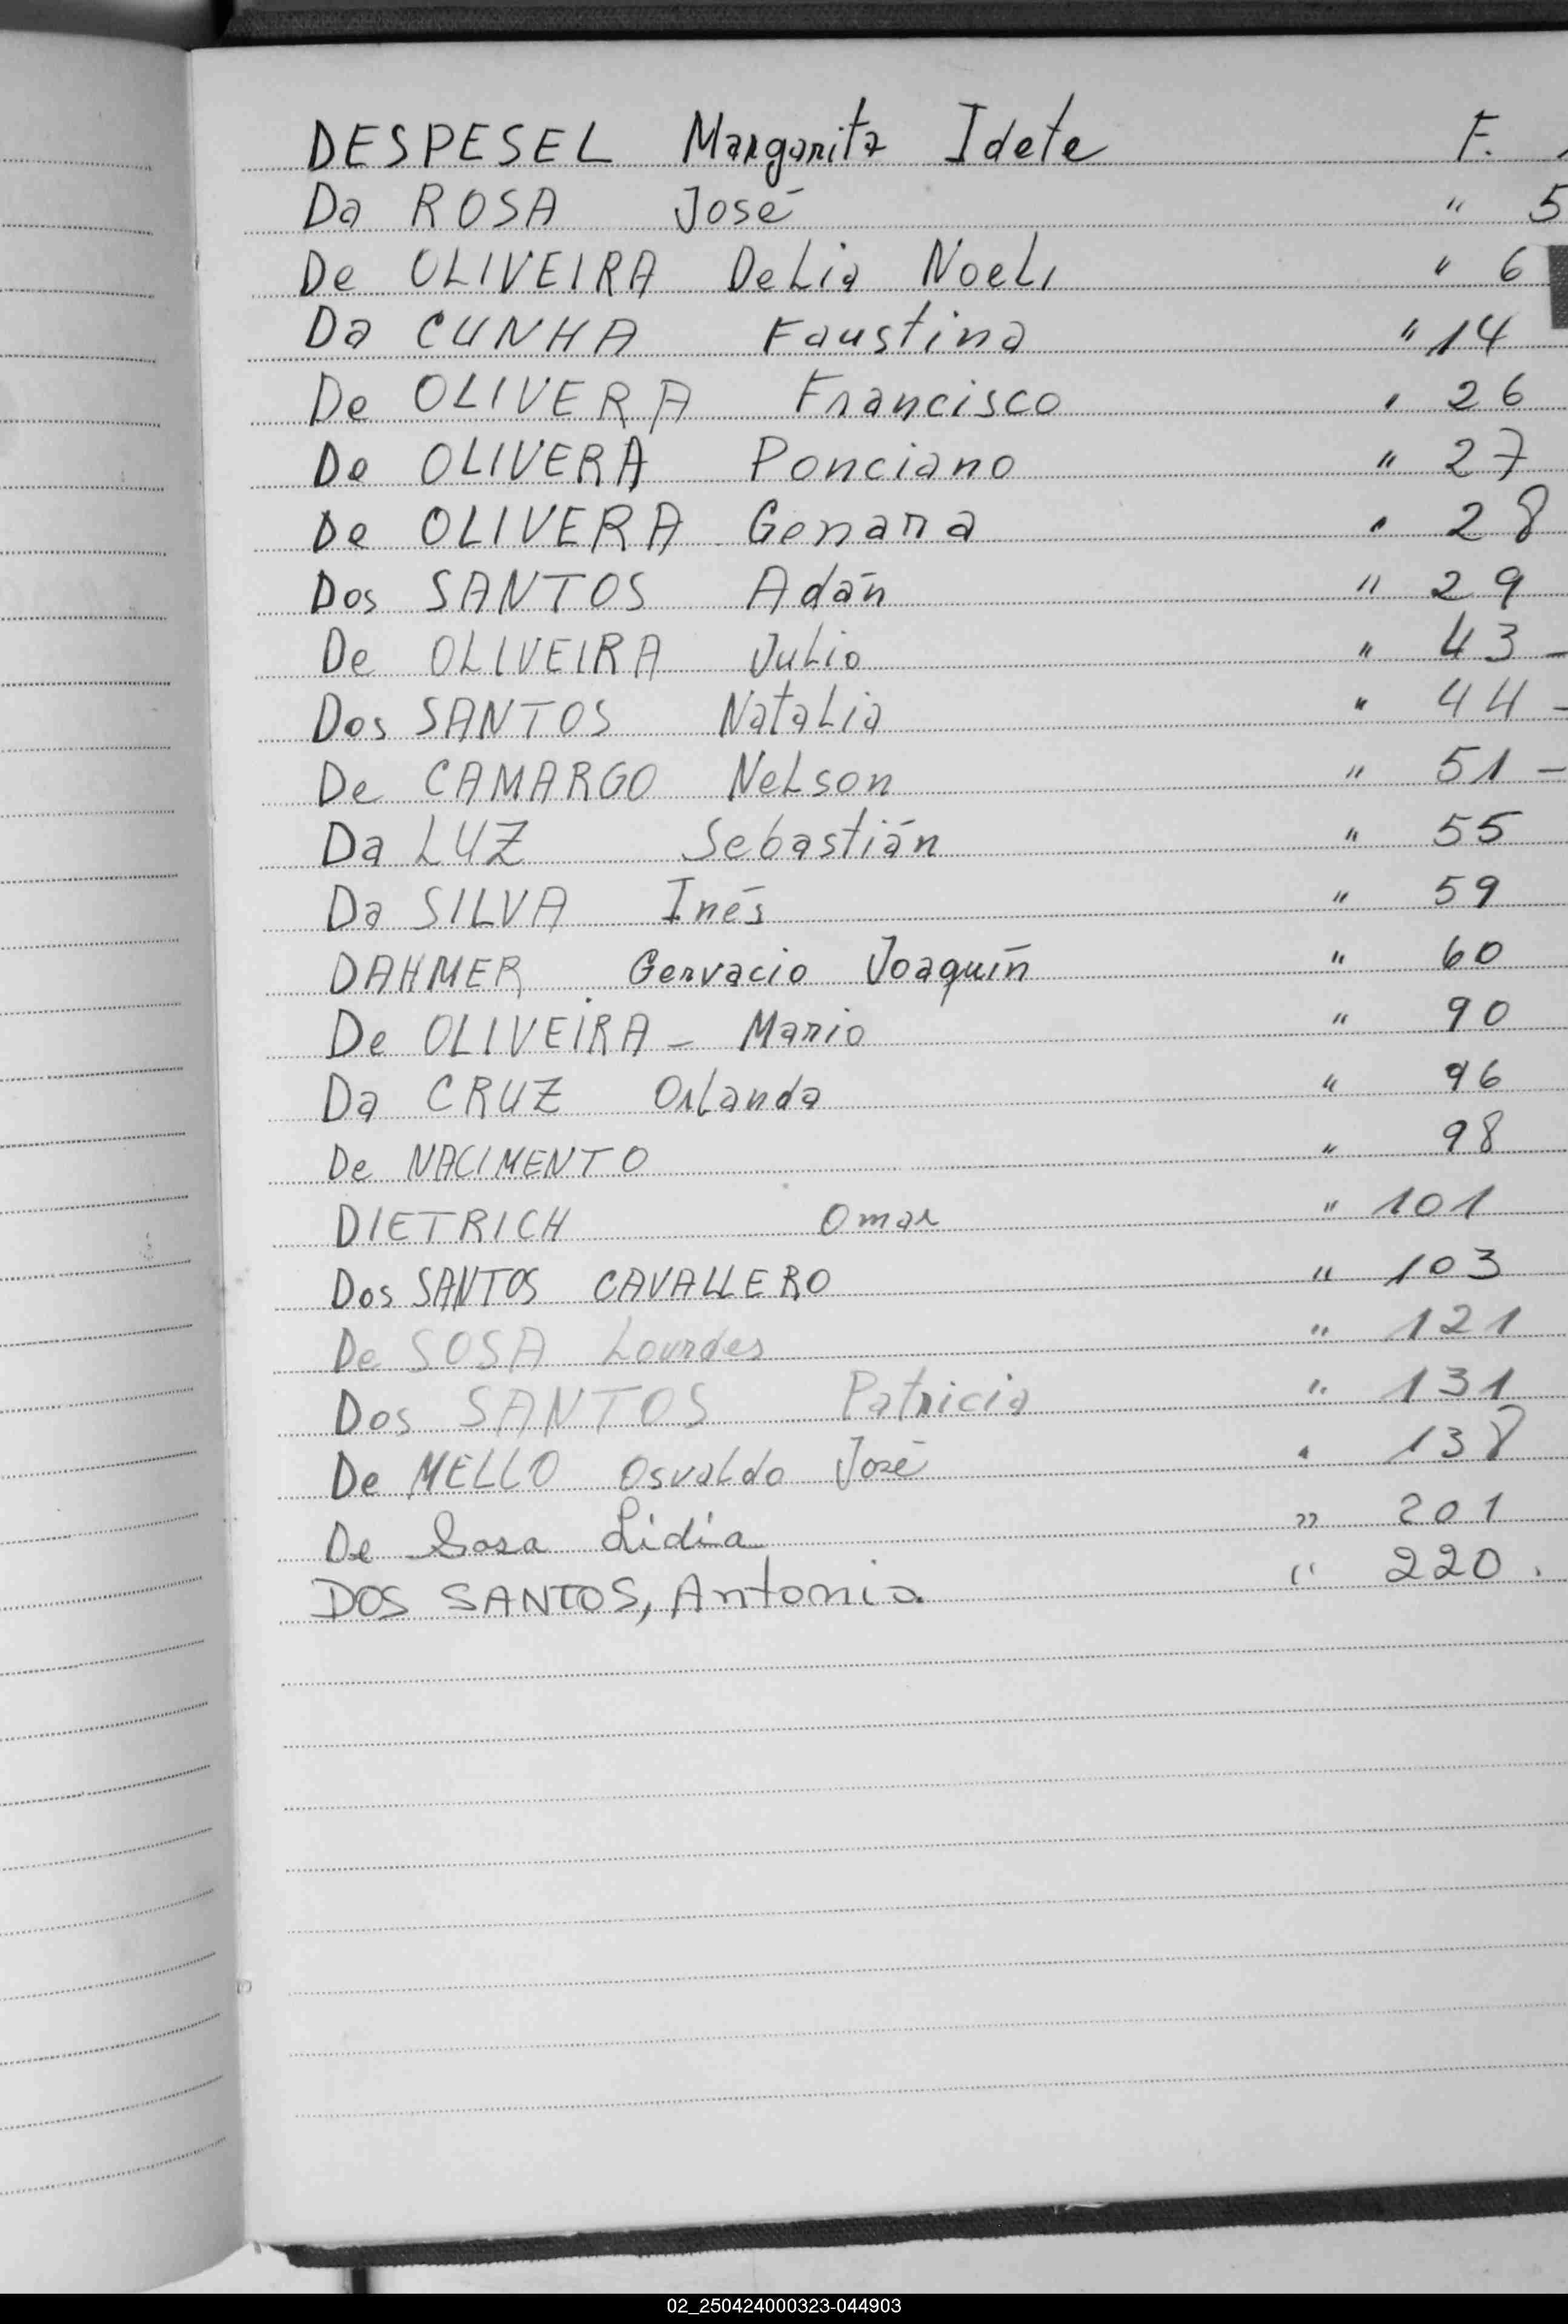 DESPESEL Margarita Idete F.
Da ROSA José " 5
De OLIVEIRA Delia Noeli " 6
Da CUNHA Faustina " 14
De OLIVERA Francisco " 26
De OLIVERA Ponciano " 27
De OLIVERA Genara " 28
Dos SANTOS Adán " 29
De OLIVEIRA Julio " 43 -
Dos SANTOS Natalia " 44 -
De CAMARGO Nelson " 51 -
Da LUZ Sebastián " 55
Da SILVA Inés " 59
DAHMER Gervacio Joaquín " 60
De OLIVEIRA - Mario " 90
Da CRUZ Orlanda " 96
De NACIMENTO " 98
DIETRICH Omar " 101
Dos SANTOS CAVALLERO " 103
De SOSA Lourdes " 121
Dos SANTOS Patricia " 131
De MELLO Osvaldo José " 138
De Sosa Lidia " 201
DOS SANTOS, Antonia " 220.
02_250424000323-044903